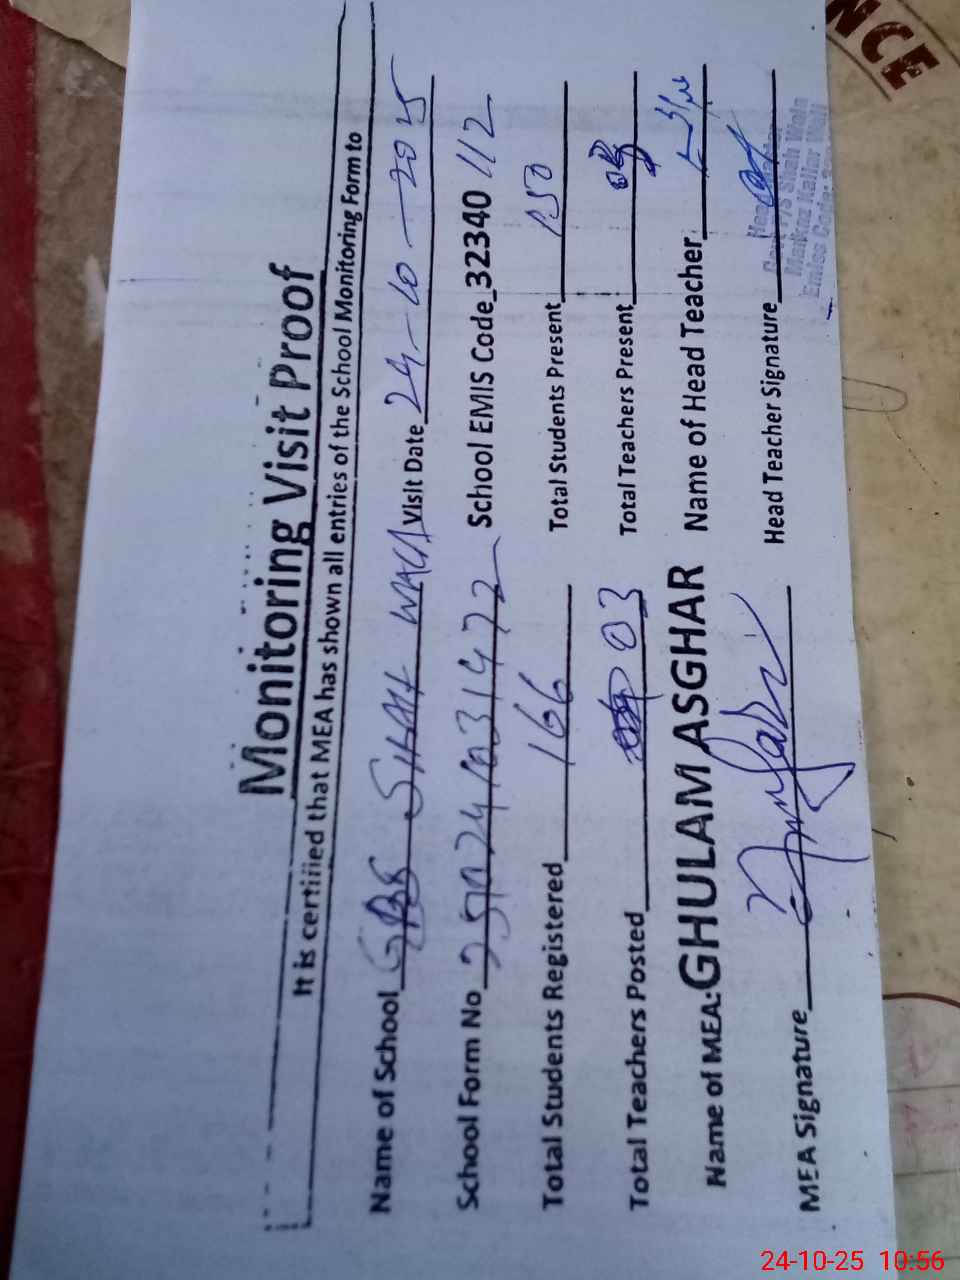 Monitoring Visit Proof
It is certified that MEA has shown all entries of the School Monitoring Form to
Name of School SHAH WALA Visit Date 24-10-2025
School Form No School EMIS Code 32340112
Total Students Registered 166 Total Students Present 150
Total Teachers Posted 03 Total Teachers Present
Name of MEA: GHULAM ASGHAR Name of Head Teacher
MEA Signature Head Teacher Signature
Shah Wala
Markaz Kallar Wali
Emiss Code:
NCE
24-10-25 10:56